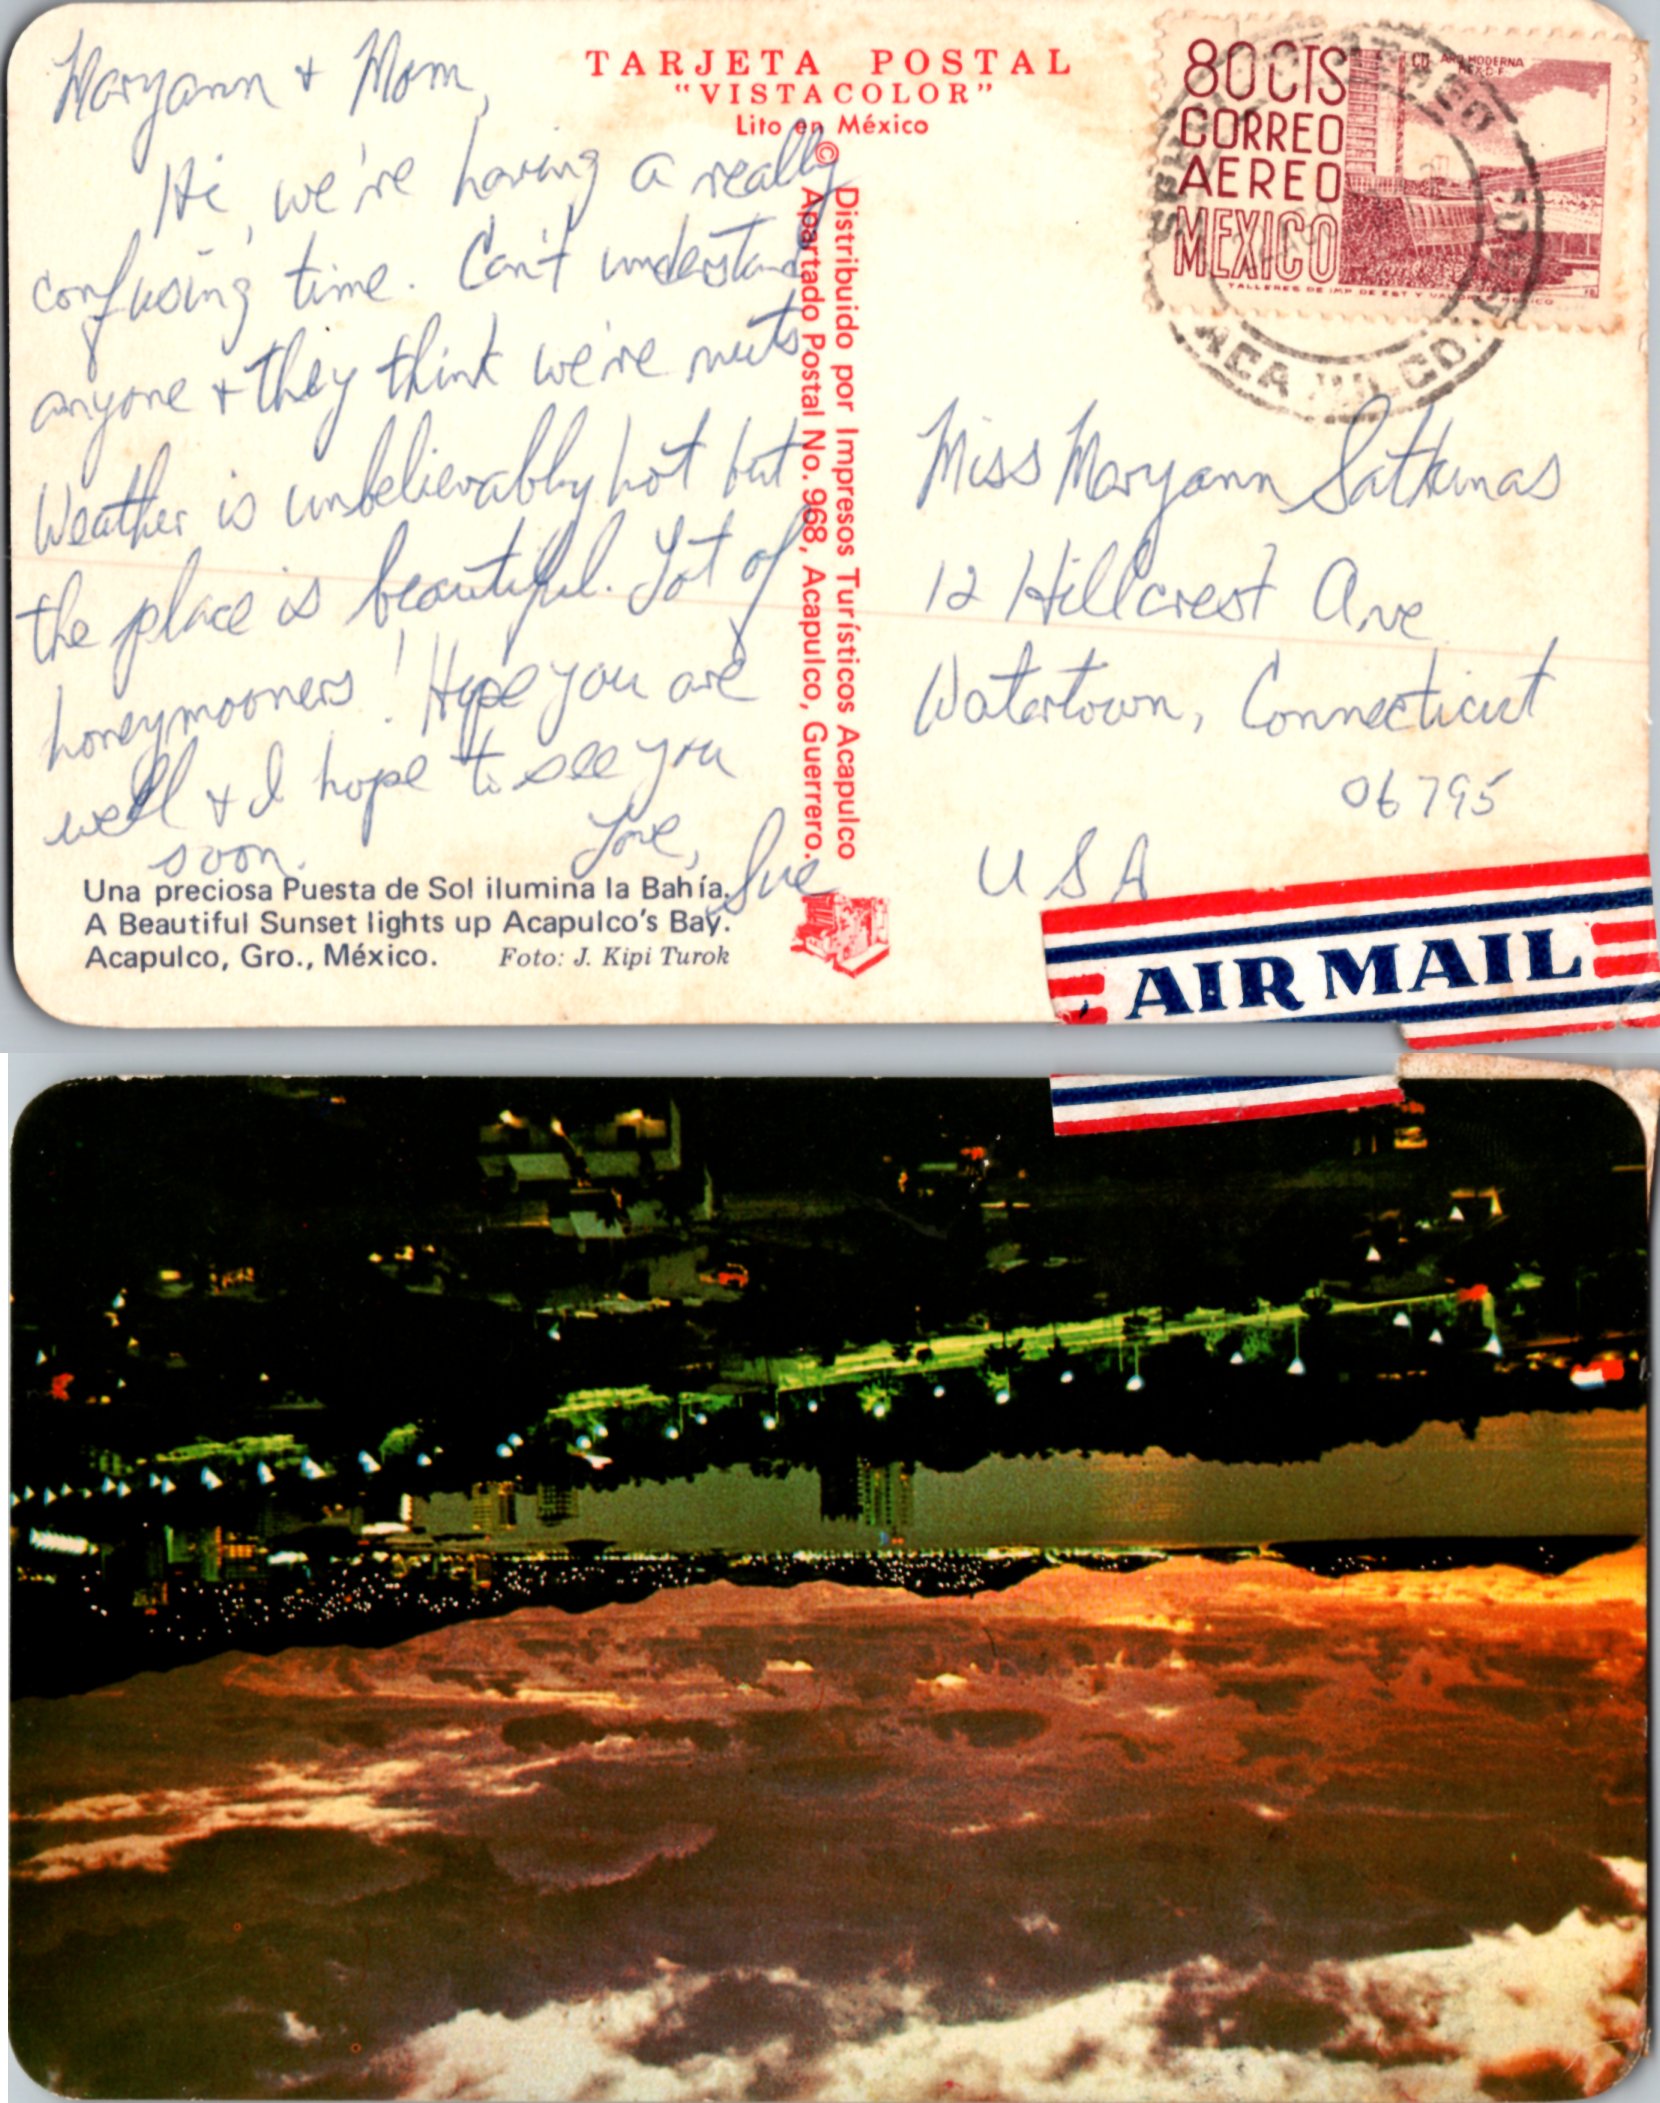 Maryann + Mom,
Hi, we're having a really
confusing time. Can't understand
anyone + they think we're nuts
Weather is unbelievably hot but
the place is beautiful. Lot of
honeymooners! Hope you are
well + I hope to see you
soon.
Love,
Sue
Una preciosa Puesta de Sol ilumina la Bahía.
A Beautiful Sunset lights up Acapulco's Bay.
Acapulco, Gro., México. Foto: J. Kipi Turok
TARJETA POSTAL
"VISTACOLOR"
Lito en México
©
Distribuido por Impresos Turísticos Acapulco
Apartado Postal No. 968, Acapulco, Guerrero.
80 CTS
CORREO
AEREO
MEXICO
ARQ. MODERNA
MEX. D.F.
ACAPULCO,
Miss Maryann Satkunas
12 Hillcrest Ave
Watertown, Connecticut
06795
USA
AIR MAIL